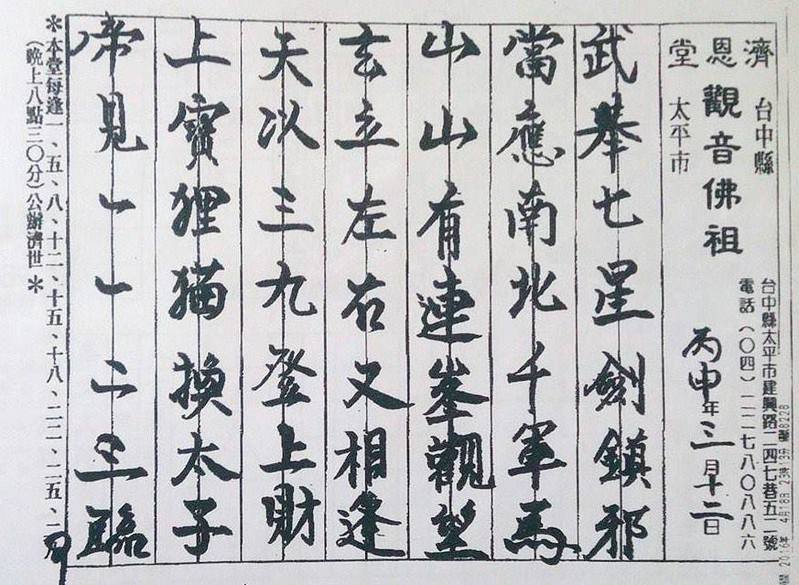 濟恩堂
台中縣
太平市
觀音佛祖
台中縣太平市建興路二四七巷五二號
電話(〇四)二二七八〇八八六
丙申年三月十二日
武舉七星劍鎮邪
當應南北千軍馬
山山有連峯觀望
玄立左右又相逢
天以三九登上財
上寶狸猫換太子
帝見一一二三臨
*本堂每逢一、五、八、十二、十五、十八、二二、二五、
(晚上八點三〇分)公辦濟世*
2016年 4月18日 23時